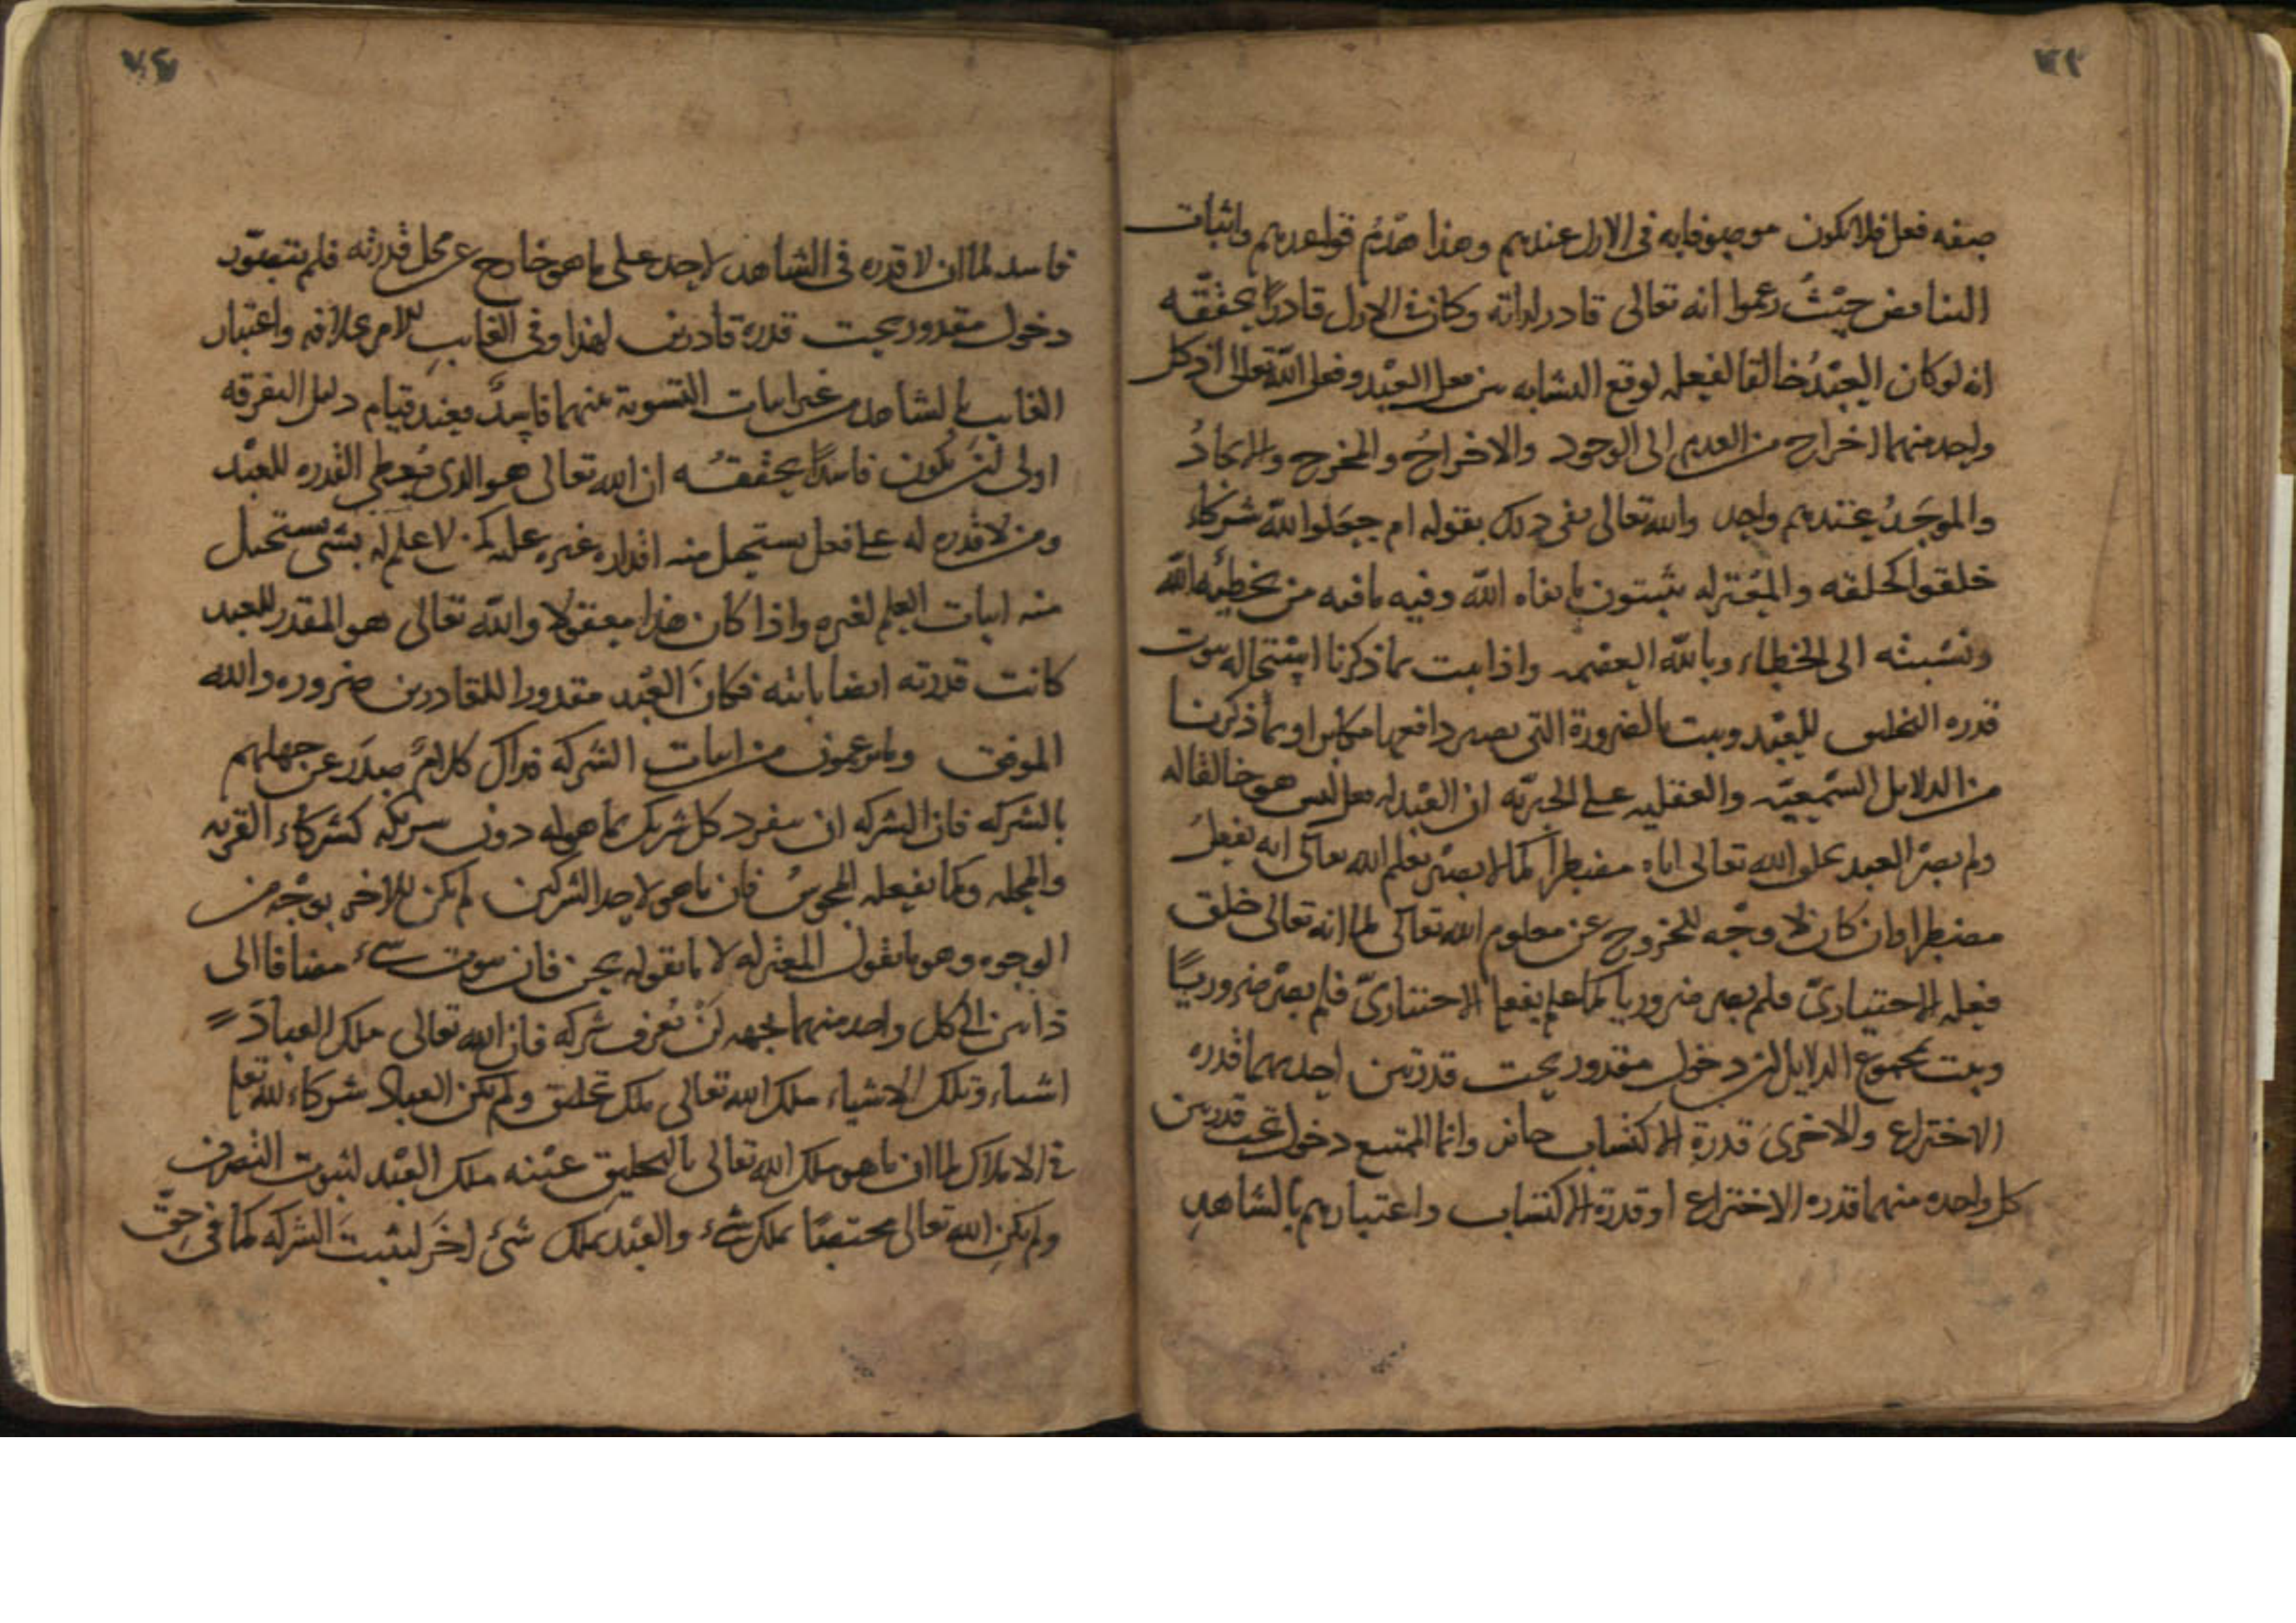 ٧٣
صفه فعل فلا يكون موصوفا به في الازل عندهم وهذا هدم قواعدهم واثبات
التناقض حيث زعموا انه تعالى قادر لذاته وكان في الازل قادرا يحققه
انه لو كان العبد خالقا لفعله لوقع التشابه بين فعل العبد وفعل الله تعالى اذ كل
واحد منهما اخراج من العدم الى الوجود والاخراج والمخرج والايجاد
والموجد عندهم واحد والله تعالى نفى ذلك بقوله ام جعلوا لله شركاء
خلقوا كخلقه والمعتزله يثبتون ما نفاه الله وفيه ما فيه من تخطيه الله
ونسبته الى الخطاء وبالله العصمه واذا ثبت بما ذكرنا استحاله ثبوت
قدره التخليق للعبد وثبت بالضرورة التي يصير دافعها مكابرا وبما ذكرنا
من الدلايل السمعيه والعقليه على الجبريه ان العبد له فعل ليس هو خالقا له
ولم يصر العبد بخلق الله تعالى اياه مضطرا كما لا يصير بعلم الله تعالى انه يفعل
مضطرا وان كان لا وجه للخروج عن معلوم الله تعالى لما انه تعالى خلق
فعله الاختياري فلم يصر ضروريا كما علم بفعله الاختياري فلم يصر ضروريا
وثبت بمجموع الدلايل ان دخول مقدور تحت قدرتين احديهما قدره
الاختراع والاخرى قدرة الاكتساب جائز وانما الممتنع دخوله تحت قدرتين
كل واحده منهما قدره الاختراع او قدرة الاكتساب واعتبارهم بالشاهد
٧٤
فاسد لما ان لا قدره في الشاهد لاحد على ما هو خارج عن محل قدرته فلم يتصور
دخول مقدور تحت قدرة قادرين لهذا وفي الغايب الامر بخلافه واعتبار
الغايب بالشاهد من غير اثبات التسوية بينهما فاسد فعند قيام دليل التفرقه
اولى ان يكون فاسدا يحققه ان الله تعالى هو الذي يعطي القدره للعبد
ومن لا قدره له على فعل يستحيل منه اقدار غيره عليه كمن لا علم له بشي يستحيل
منه اثبات العلم لغيره واذا كان هذا معقولا والله تعالى هو المقدر للعبد
كانت قدرته ايضا ثابته فكان العبد مقدورا للقادرين ضروره والله
الموفق وما يزعمون من اثبات الشركه فذاك كلام صدر عن جهلهم
بالشركه فان الشركه ان ينفرد كل شريك بما هو له دون شريكه كشركاء القريه
والمحله وكما يفعله المجوس فان ما هو لاحد الشركين لم يكن للاخر بوجه من
الوجوه وهو ما تقول المعتزله لا ما نقوله نحن فان ثبوت شيء مضافا الى
ذاتين الى كل واحد منهما بجهه لن تعرف شركه فان الله تعالى ملك العباد
اشياء وتلك الاشياء ملك الله تعالى ملك تخليق ولم يكن العباد شركاء لله تعالى
في الاملاك لما ان ما هو ملك الله تعالى بالتخليق عينه ملك العبد لثبوت التصرف
ولم يكن الله تعالى مختصا بملك شيء والعبد بملك شيء اخر ليثبت الشركه كما في حق